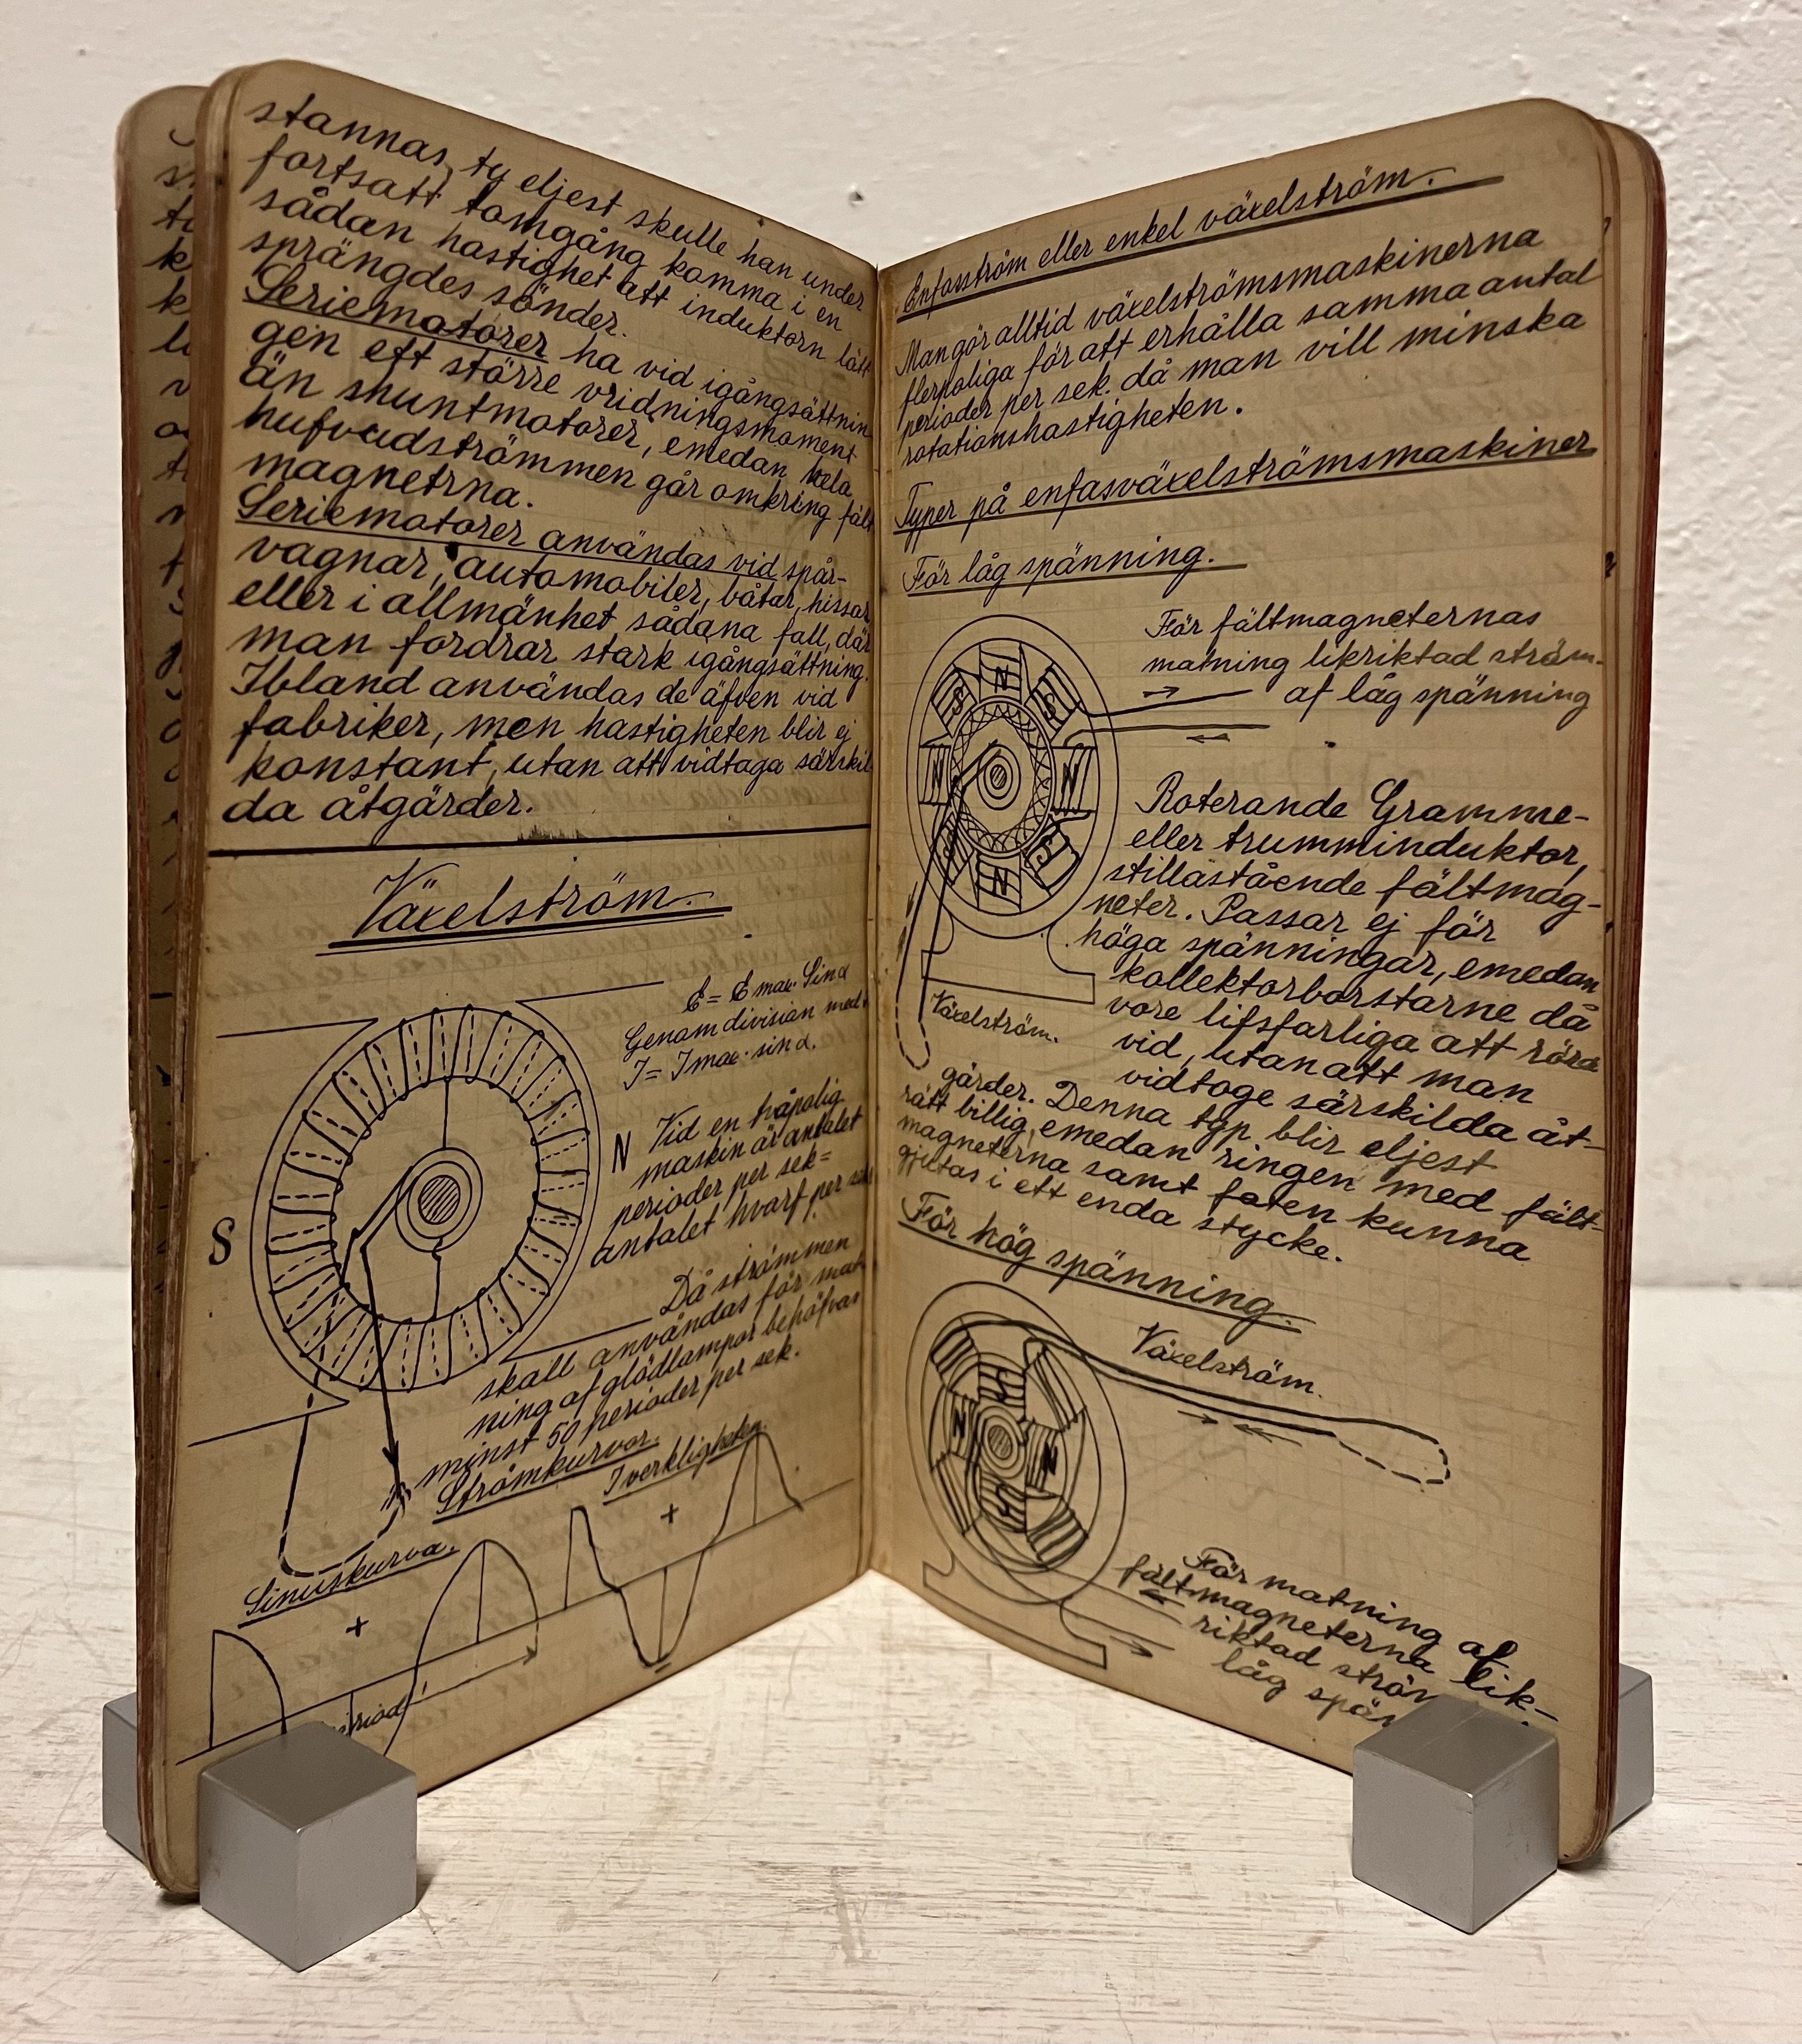 stannas, ty eljest skulle han under
fortsatt tomgång komma i en
sådan hastighet att induktorn lätt
sprängdes sönder.
Seriemotorer ha vid igångsättnin
gen ett större vridningsmoment
än shuntmotorer, emedan hela
hufvudströmmen går omkring fält
magnetrna.
Seriemotorer användas vid spår-
vagnar, automobiler, båtar, hissar
eller i allmänhet sådana fall, där
man fordrar stark igångsättning.
Ibland användas de äfven vid
fabriker, men hastigheten blir ej
konstant, utan att vidtaga särskil
da åtgärder.
Växelström.
E = E max. Sin α
Genom division med
I = I max. sin α.
N
S
Vid en tvåpolig
maskin är antalet
perioder per sek =
antalet hvarf per sek
Då strömmen
skall användas för mat
ning af glödlampor behöfvas
minst 50 perioder per sek.
Strömkurvor.
Sinuskurva.
I verkligheten.
+
+
–
period
Enfasström eller enkel växelström.
Man gör alltid växelströmsmaskinerna
flerpoliga för att erhålla samma antal
perioder per sek. då man vill minska
rotationshastigheten.
Typer på enfasväxelströmsmaskiner
För låg spänning.
För fältmagneternas
matning likriktad ström.
af låg spänning
N
S
S
N
N
S
N
Växelström.
Roterande Gramme-
eller trumminduktor,
stillastående fältmag-
neter. Passar ej för
höga spänningar, emedan
kollektorborstarne då
vore lifsfarliga att röra
vid, utan att man
vidtoge särskilda åt-
gärder. Denna typ blir eljest
rätt billig, emedan ringen med fält-
magneterna samt foten kunna
gjutas i ett enda stycke.
För hög spänning.
Växelström.
S
N
N
S
För matning af
fältmagneterna lik-
riktad ström
låg spän